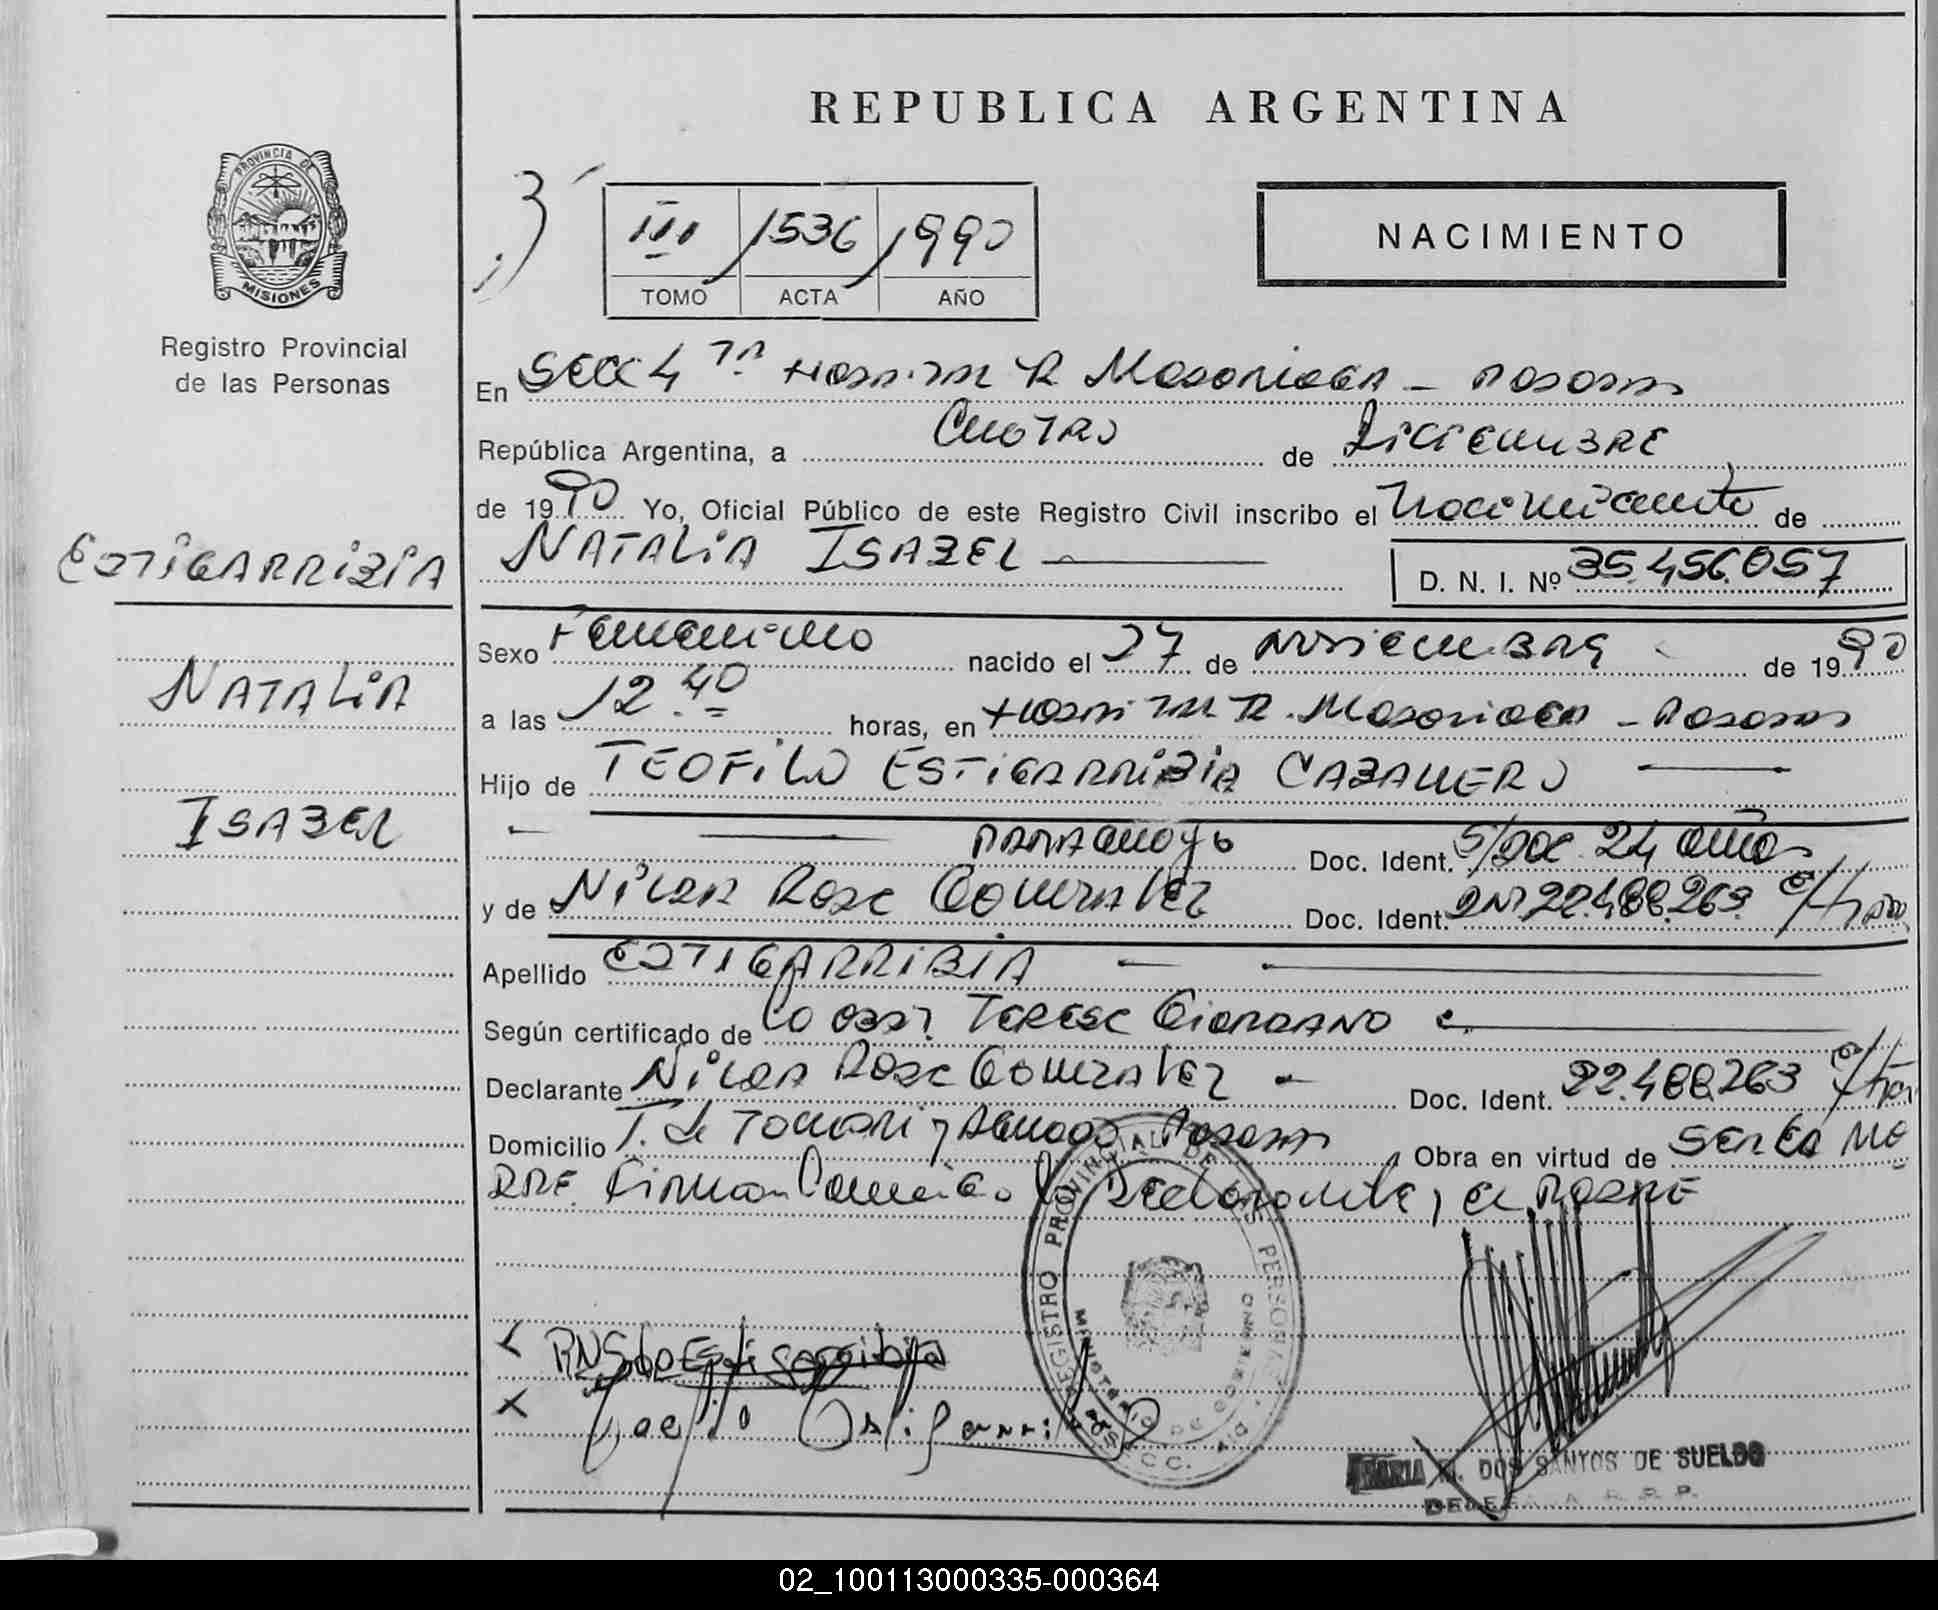 REPUBLICA ARGENTINA
PROVINCIA DE
MISIONES
Registro Provincial
de las Personas
III 1536 1990
TOMO ACTA AÑO
NACIMIENTO
En Secc 4 Hospital R. Madariaga - Posadas
República Argentina, a Cuatro de Diciembre
de 1990 Yo, Oficial Público de este Registro Civil inscribo el Nacimiento de
NATALIA ISABEL
D. N. I. Nº 35.456.057
ESTIGARRIBIA
NATALIA
ISABEL
Sexo Femenino nacido el 27 de Noviembre de 1990
a las 12.40 horas, en Hospital R. Madariaga - Posadas
Hijo de TEOFILO ESTIGARRIBIA CABALLERO
Paraguayo Doc. Ident. S/Doc. 24 años
y de Nilda Rosa Gonzalez Doc. Ident. DNI 22.488.263
Apellido ESTIGARRIBIA
Según certificado de la Obst. Teresa Giordano
Declarante Nilda Rosa Gonzalez Doc. Ident. 22.488.263
Domicilio Posadas Obra en virtud de ser la Ma
dre. Firman Conmigo la Declarante y el Padre
REGISTRO PROVINCIAL DE LAS PERSONAS
MINISTERIO DE GOBIERNO
MARIA DOS SANTOS DE SUELDO
DELEGADA R. P. P.
02_100113000335-000364